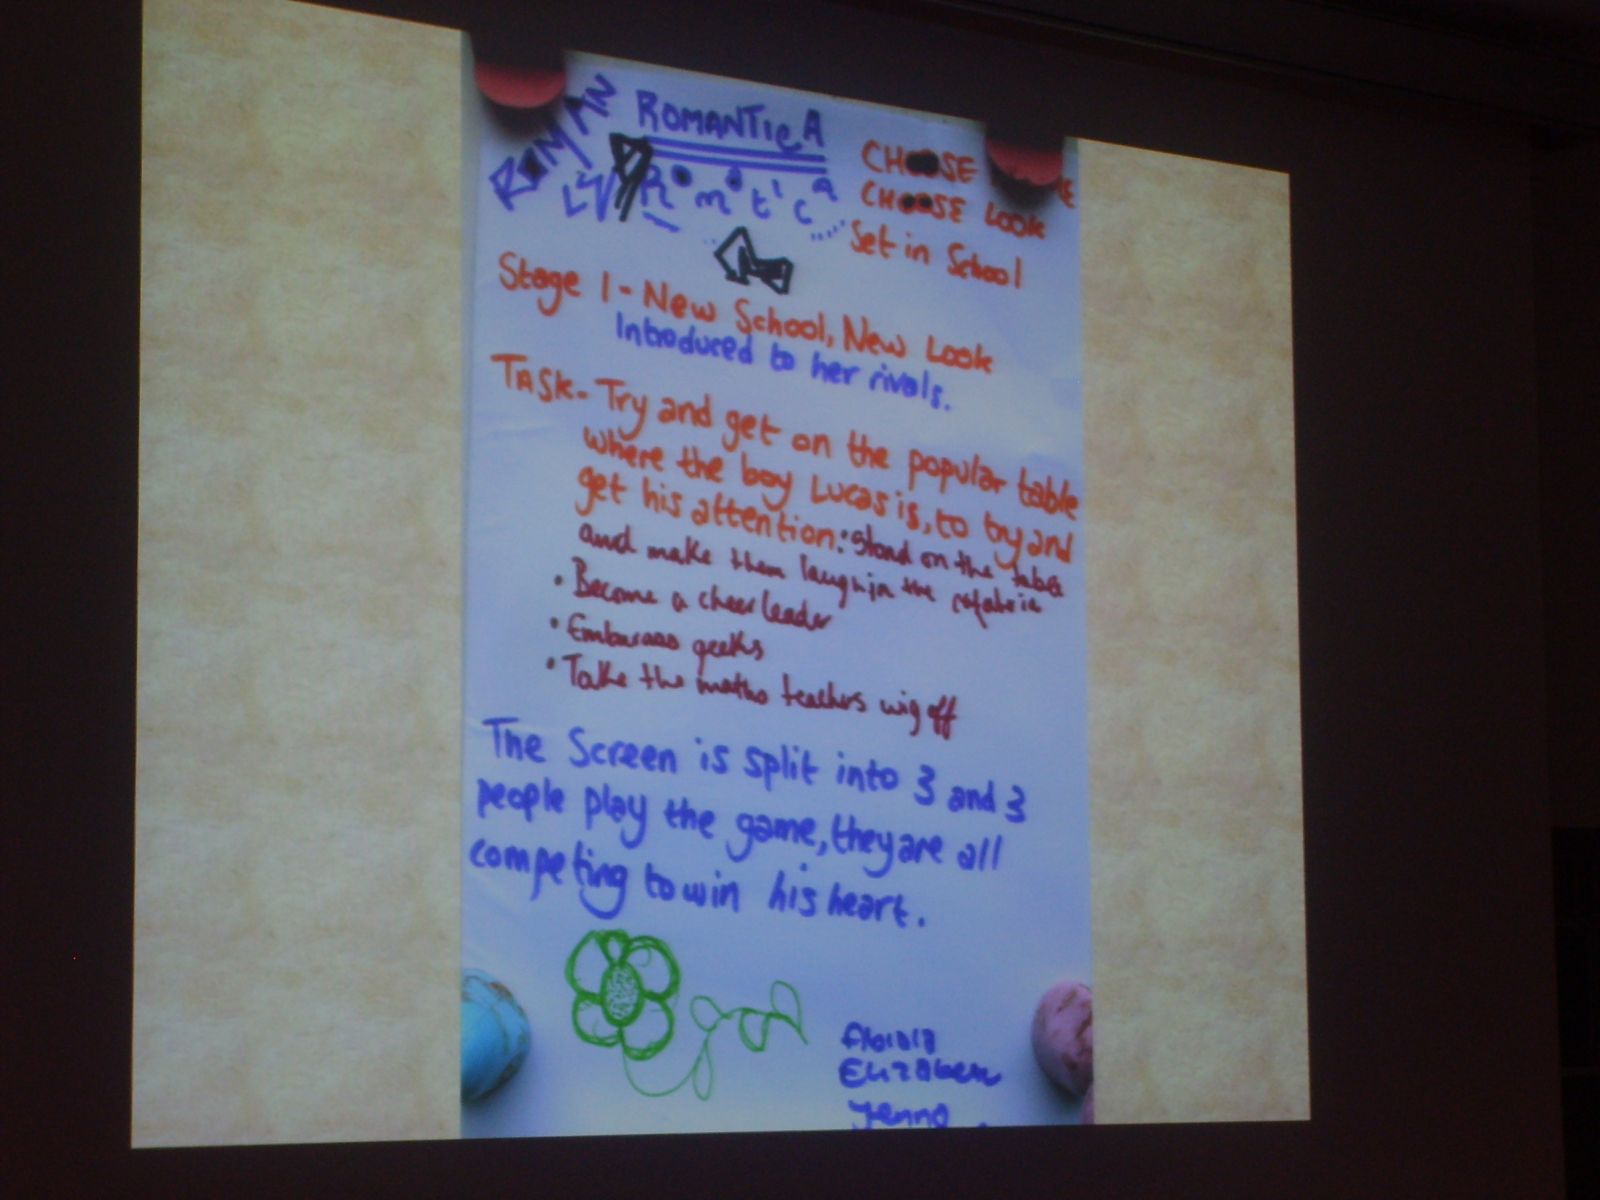 ROMAN
ROMANTICA
Romotica
CHOOSE
CHOOSE LOOK
Set in School
Stage 1 - New School, New Look
Introduced to her rivals.
TASK - Try and get on the popular table
where the boy Lucas is, to try and
get his attention: Stand on the tables
and make them laugh in the
• Become a cheerleader
• Embarass geeks
• Take the maths teachers wig off
The Screen is split into 3 and 3
people play the game, they are all
competing to win his heart.
Elizabeth
Jenna